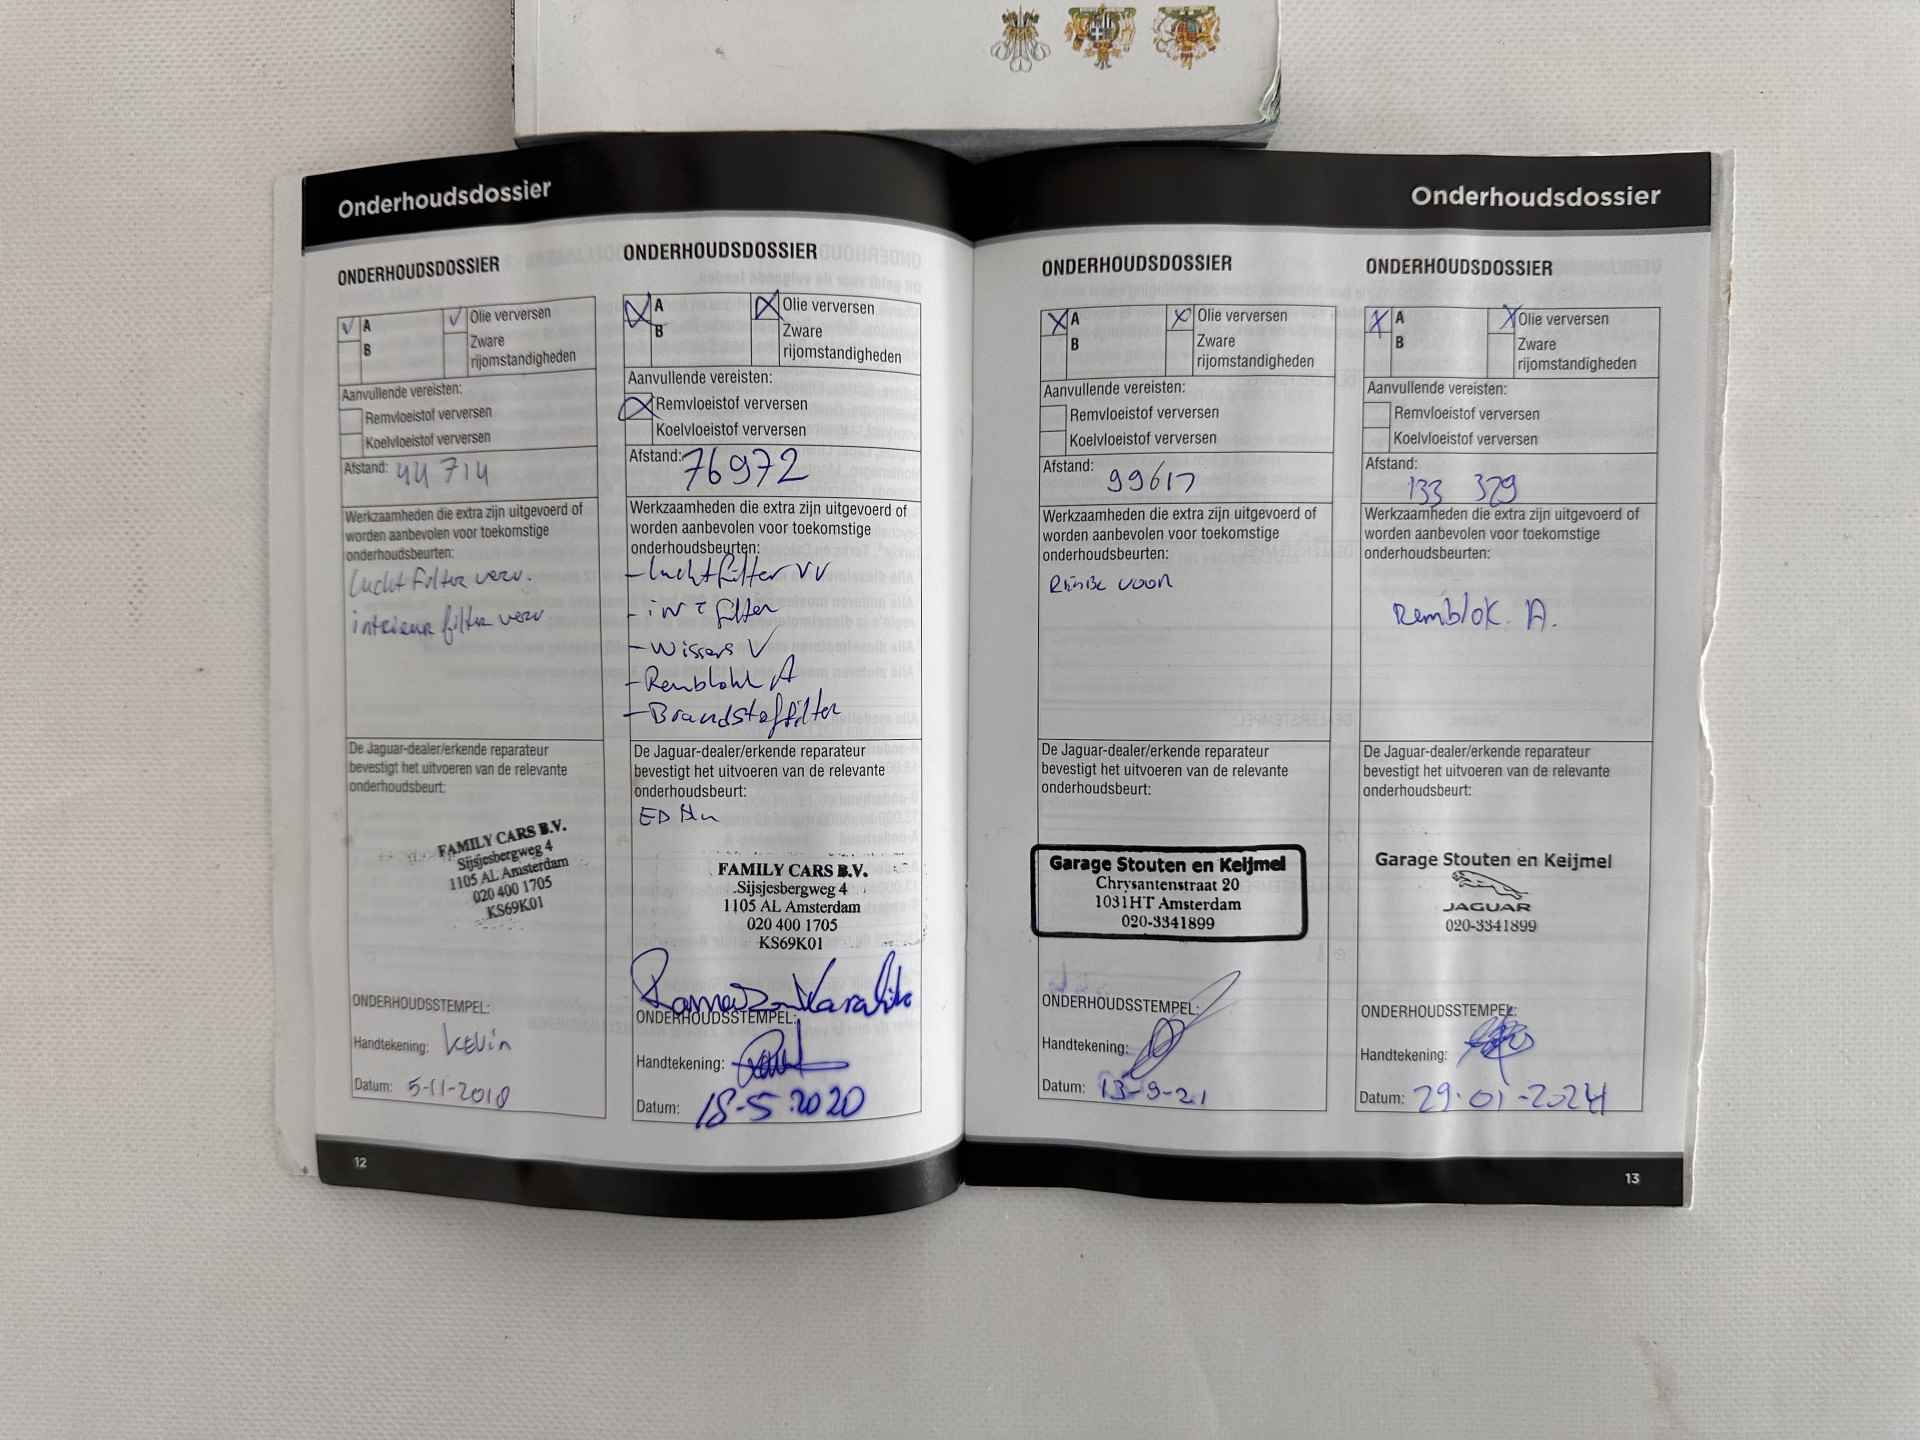 Onderhoudsdossier
ONDERHOUDSDOSSIER
A
B
Olie verversen
Zware
rijomstandigheden
Aanvullende vereisten:
Remvloeistof verversen
Koelvloeistof verversen
Afstand: 44 714
Werkzaamheden die extra zijn uitgevoerd of
worden aanbevolen voor toekomstige
onderhoudsbeurten:
lucht filter verv.
interieur filter verv
De Jaguar-dealer/erkende reparateur
bevestigt het uitvoeren van de relevante
onderhoudsbeurt:
FAMILY CARS B.V.
Sijsjesbergweg 4
1105 AL Amsterdam
020 400 1705
KS69K01
ONDERHOUDSSTEMPEL:
Handtekening: Kevin
Datum: 5-11-2018
12
ONDERHOUDSDOSSIER
A
B
Olie verversen
Zware
rijomstandigheden
Aanvullende vereisten:
Remvloeistof verversen
Koelvloeistof verversen
Afstand: 76972
Werkzaamheden die extra zijn uitgevoerd of
worden aanbevolen voor toekomstige
onderhoudsbeurten:
- luchtfilter vv
- int filter
- wissers V
- Remblokk A
- Brandstoffilter
De Jaguar-dealer/erkende reparateur
bevestigt het uitvoeren van de relevante
onderhoudsbeurt:
FAMILY CARS B.V.
Sijsjesbergweg 4
1105 AL Amsterdam
020 400 1705
KS69K01
ONDERHOUDSSTEMPEL:
Handtekening:
Datum: 18-5-2020
Onderhoudsdossier
ONDERHOUDSDOSSIER
A
B
Olie verversen
Zware
rijomstandigheden
Aanvullende vereisten:
Remvloeistof verversen
Koelvloeistof verversen
Afstand: 99617
Werkzaamheden die extra zijn uitgevoerd of
worden aanbevolen voor toekomstige
onderhoudsbeurten:
voor
De Jaguar-dealer/erkende reparateur
bevestigt het uitvoeren van de relevante
onderhoudsbeurt:
Garage Stouten en Keijmel
Chrysantenstraat 20
1031HT Amsterdam
020-3341899
ONDERHOUDSSTEMPEL:
Handtekening:
Datum: 13-9-21
ONDERHOUDSDOSSIER
A
B
Olie verversen
Zware
rijomstandigheden
Aanvullende vereisten:
Remvloeistof verversen
Koelvloeistof verversen
Afstand:
133 379
Werkzaamheden die extra zijn uitgevoerd of
worden aanbevolen voor toekomstige
onderhoudsbeurten:
Remblok. A.
De Jaguar-dealer/erkende reparateur
bevestigt het uitvoeren van de relevante
onderhoudsbeurt:
Garage Stouten en Keijmel
JAGUAR
020-3341899
ONDERHOUDSSTEMPEL:
Handtekening:
Datum: 29-01-2024
13